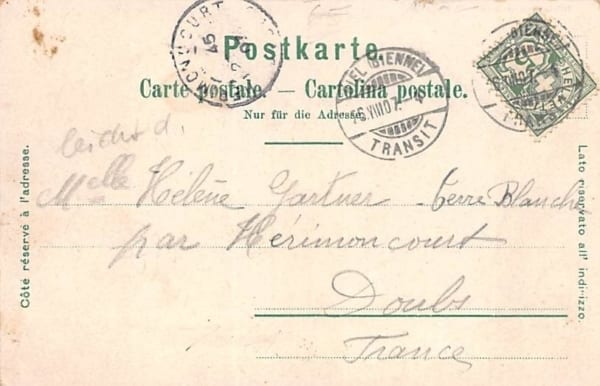 Postkarte.
Carte postale. — Cartolina postale.
Nur für die Adresse.
Côté réservé à l'adresse.
Lato riservato all' indirizzo.
BIEL (BIENNE)
TRANSIT
BIENNE
TRANSIT
Melle Hélène Gartner Terre Blanche
par Hérimoncourt
Doubs
France